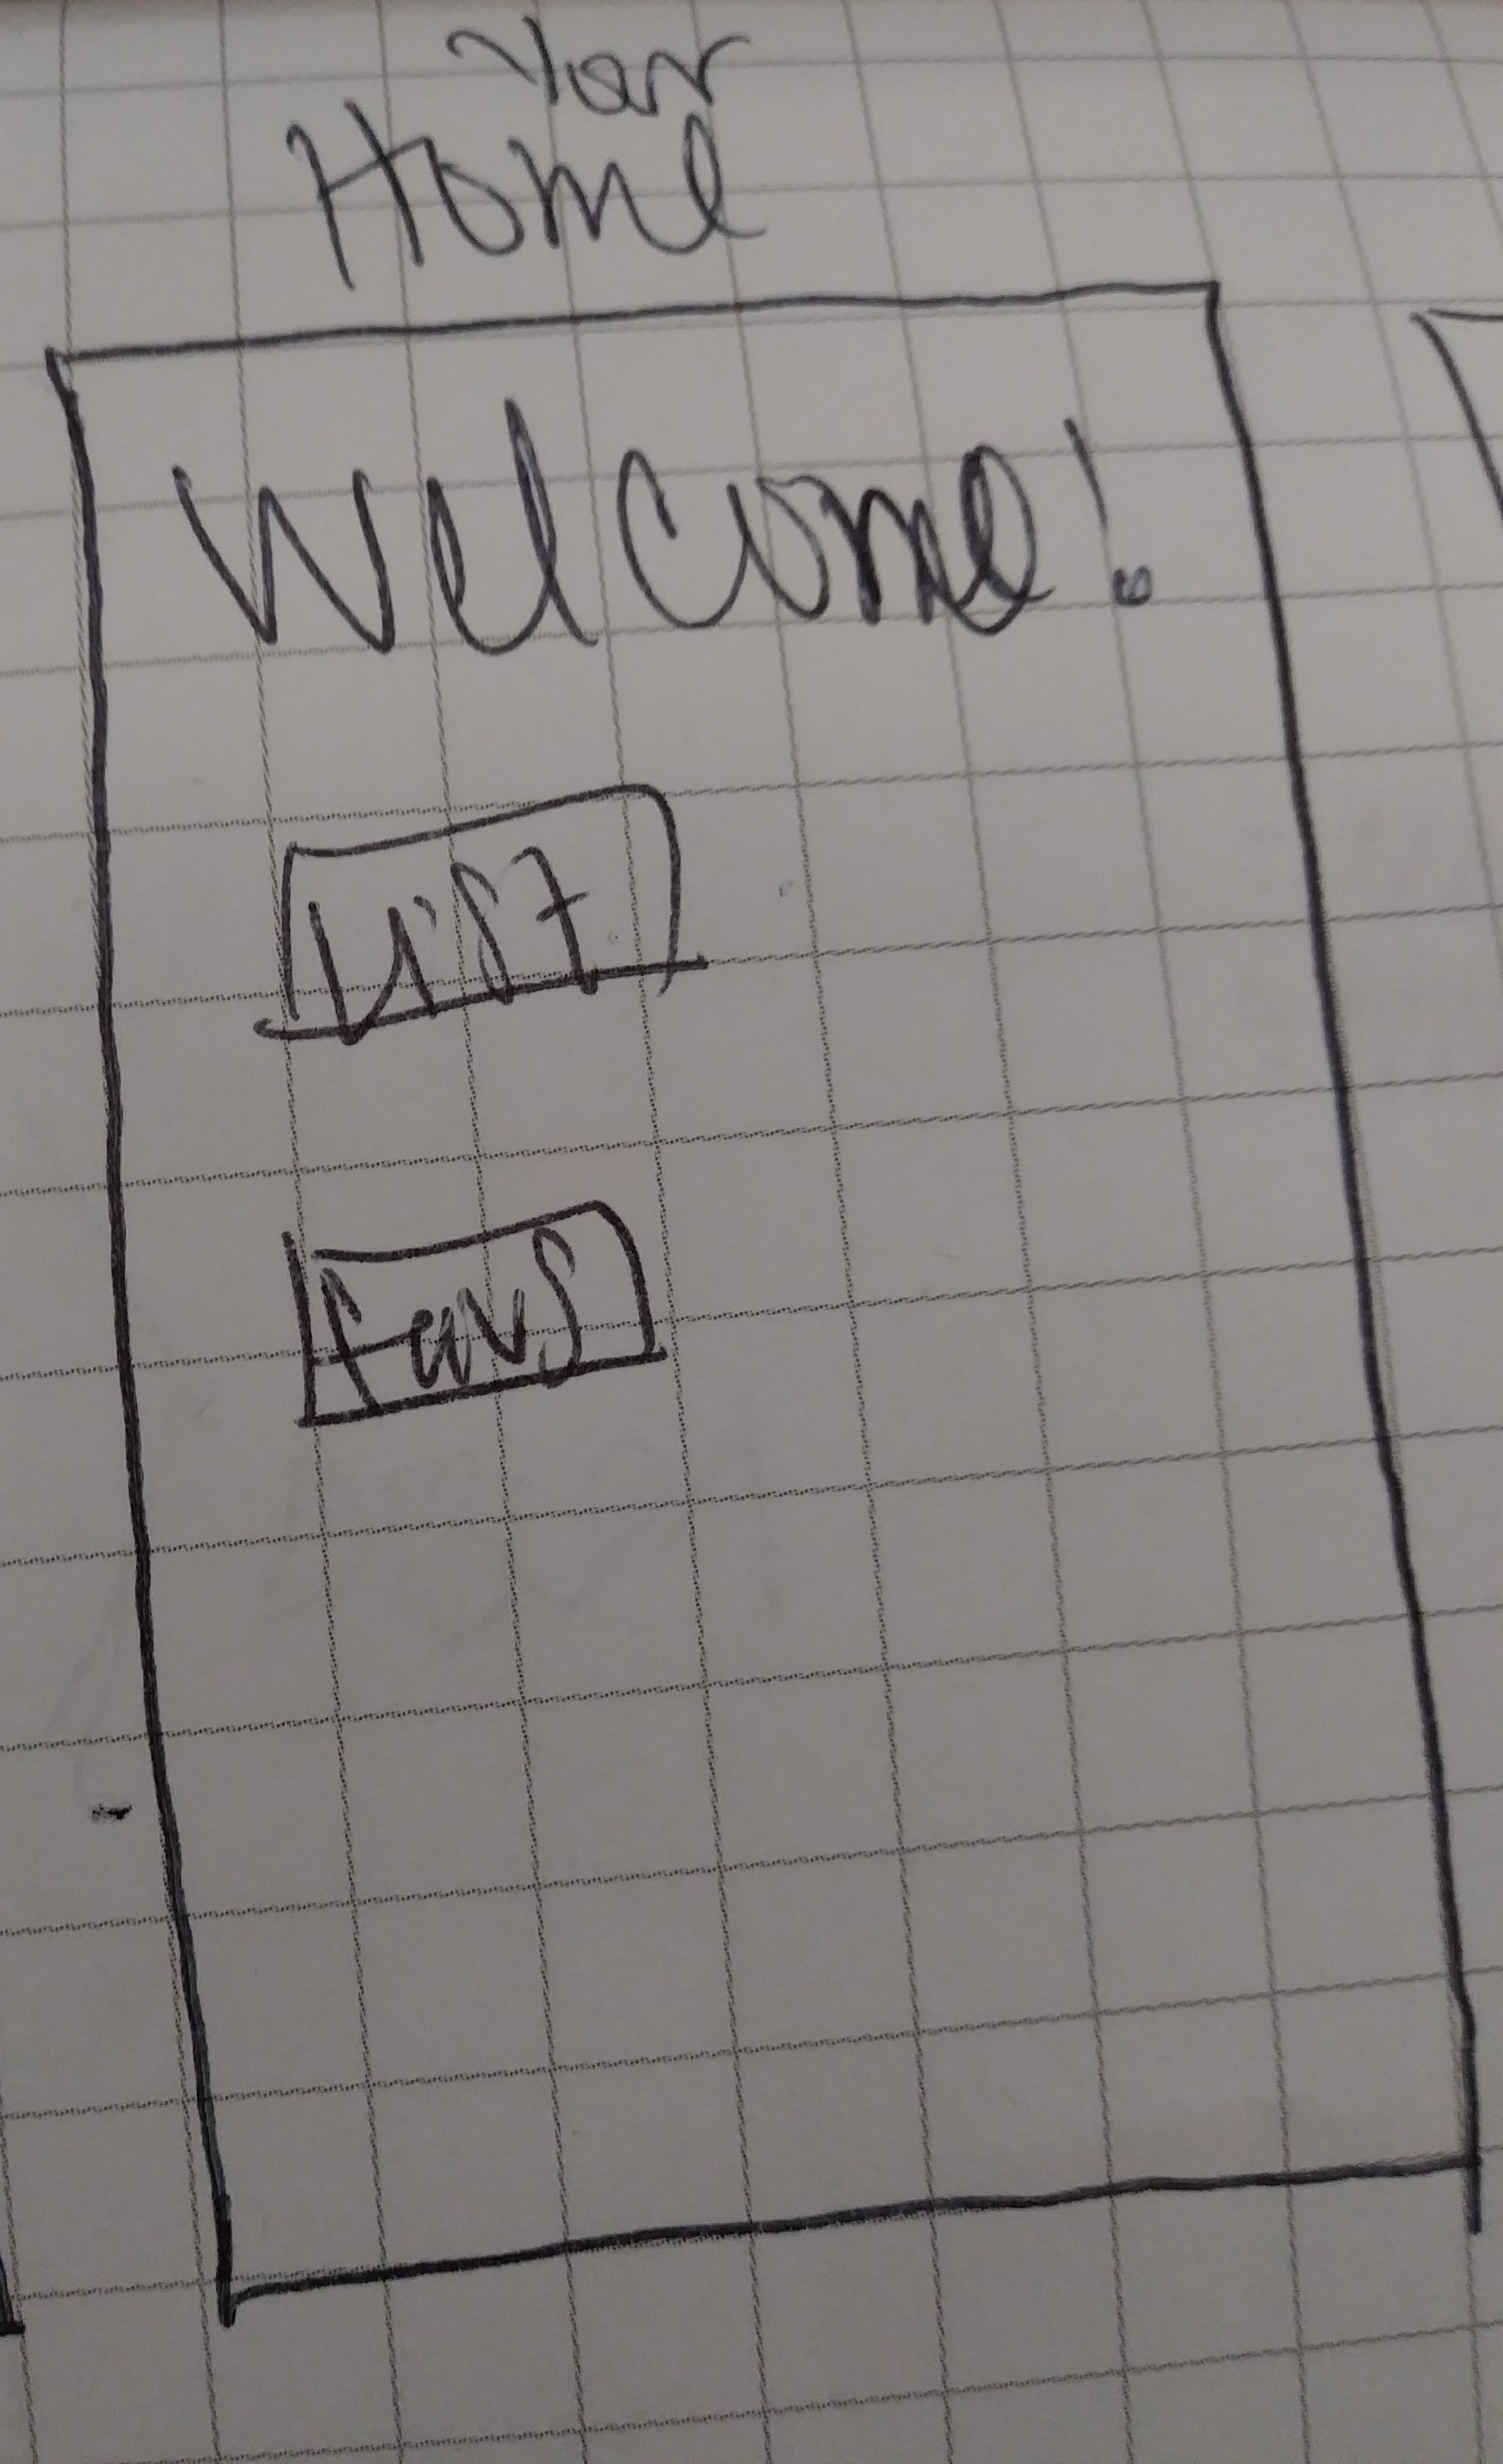 Your
Home
Welcome!
List
favs